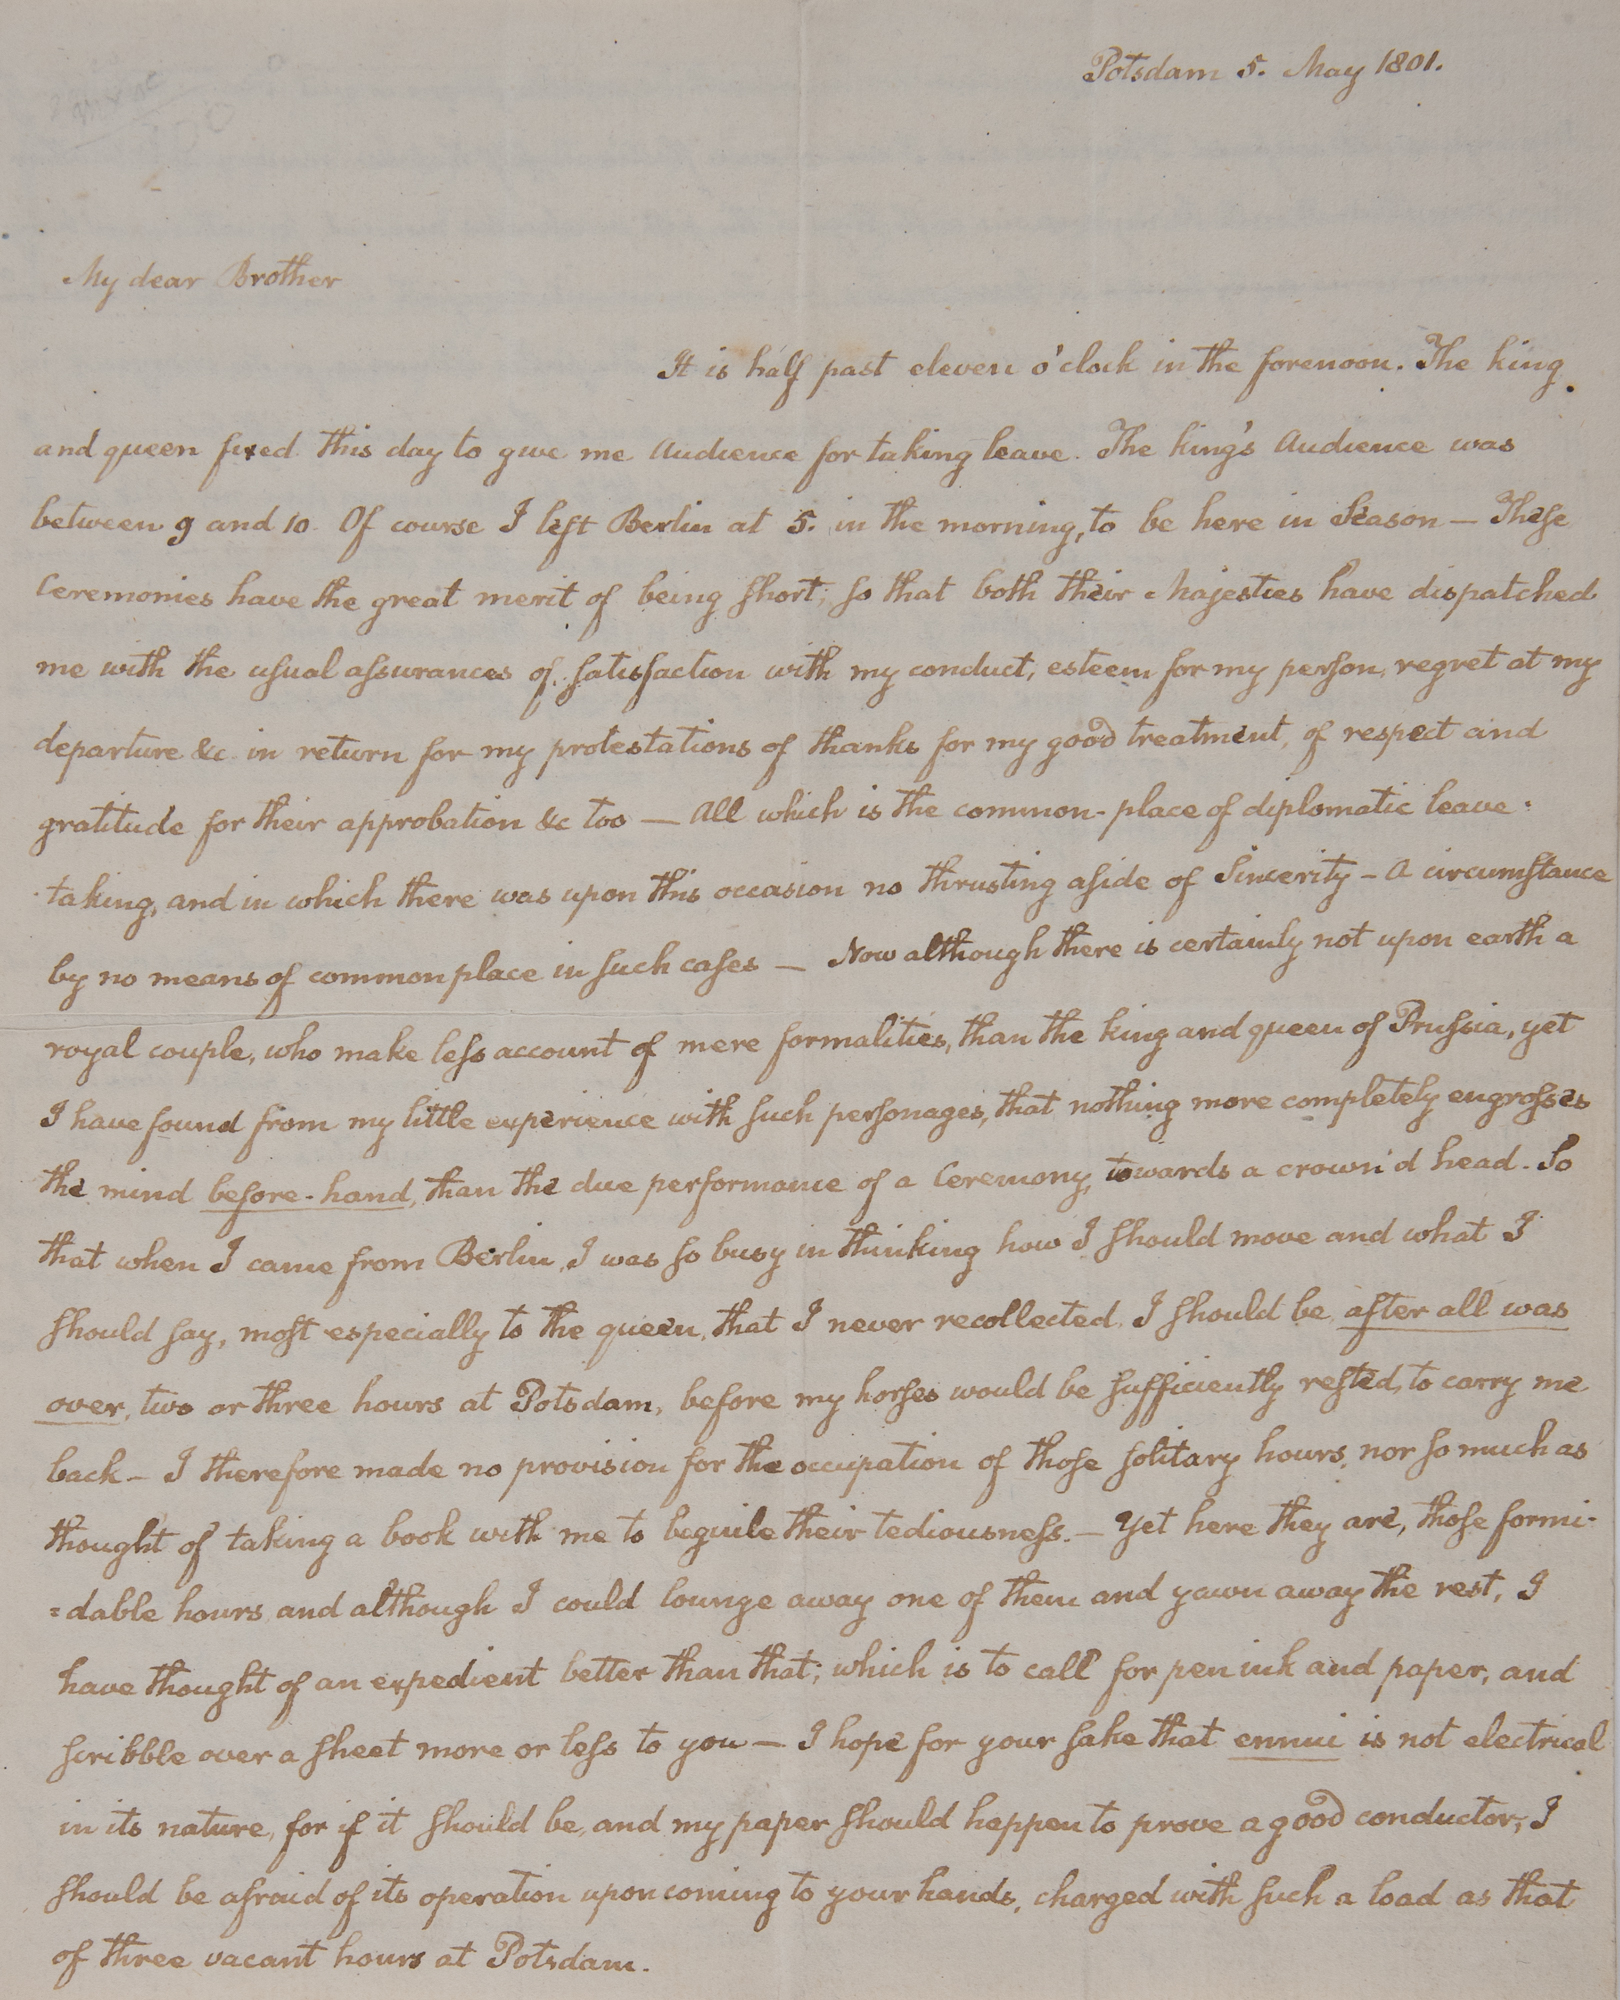 Potsdam 5. May 1801.
My dear Brother
It is half past eleven o'clock in the forenoon. The king
and queen fixed this day to give me Audience for taking leave. The king's Audience was
between 9 and 10. Of course I left Berlin at 5. in the morning, to be here in Season — These
Ceremonies have the great merit of being short; so that both their Majesties have dispatched
me with the usual assurances of satisfaction with my conduct, esteem for my person, regret at my
departure &c in return for my protestations of thanks for my good treatment, of respect and
gratitude for their approbation &c too — All which is the common-place of diplomatic leave-
taking, and in which there was upon this occasion no thrusting aside of Sincerity — A circumstance
by no means of common place in such cases — Now although there is certainly not upon earth a
royal couple, who make less account of mere formalities, than the king and queen of Prussia, yet
I have found from my little experience with such personages, that nothing more completely engrosses
the mind before-hand, than the due performance of a Ceremony, towards a crown'd head. So
that when I came from Berlin, I was so busy in thinking how I should move and what I
should say, most especially to the queen, that I never recollected, I should be, after all was
over, two or three hours at Potsdam, before my horses would be sufficiently rested, to carry me
back — I therefore made no provision for the occupation of those solitary hours, nor so much as
thought of taking a book with me to beguile their tediousness. — Yet here they are, those formi-
=dable hours, and although I could lounge away one of them and yawn away the rest, I
have thought of an expedient better than that; which is to call for pen ink and paper, and
scribble over a sheet more or less to you — I hope for your sake that ennui is not electrical
in its nature, for if it should be, and my paper should happen to prove a good conductor, I
should be afraid of its operation upon coming to your hands, charged with such a load as that
of three vacant hours at Potsdam.